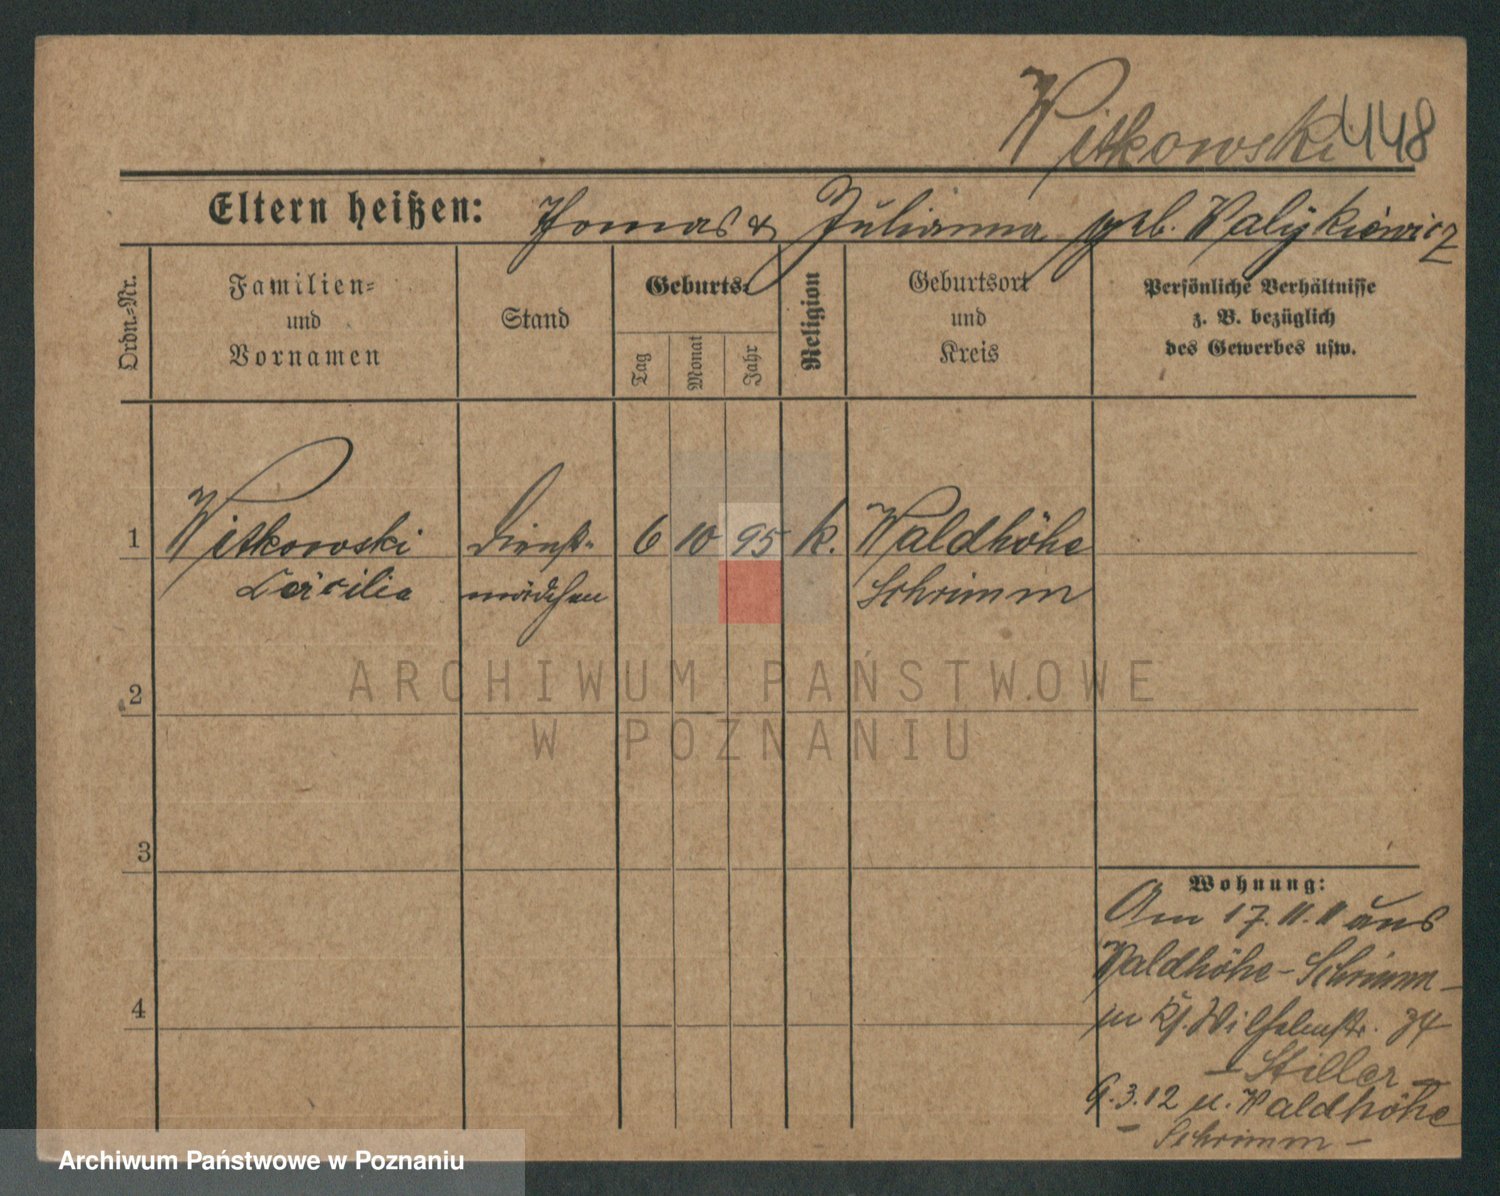 Witkowski 448
Eltern heißen: Thomas & Julianna geb. Walykiewicz
Ordn.-Nr.
Familien-
und
Vornamen
Stand
Geburts-
Tag
Monat
Jahr
Religion
Geburtsort
und
Kreis
Persönliche Verhältnisse
z. B. bezüglich
des Gewerbes usw.
1 Witkowski Dienst- 6 10 95 k. Waldhöhe
Cäcilie mädchen Schrimm
ARCHIWUM PAŃSTWOWE
W POZNANIU
2
3
4
Wohnung:
Am 17.11.11 aus
Waldhöhe-Schrimm-
Wilhelmstr. 34
- Stiller -
9.3.12 n. Waldhöhe
- Schrimm -
Archiwum Państwowe w Poznaniu